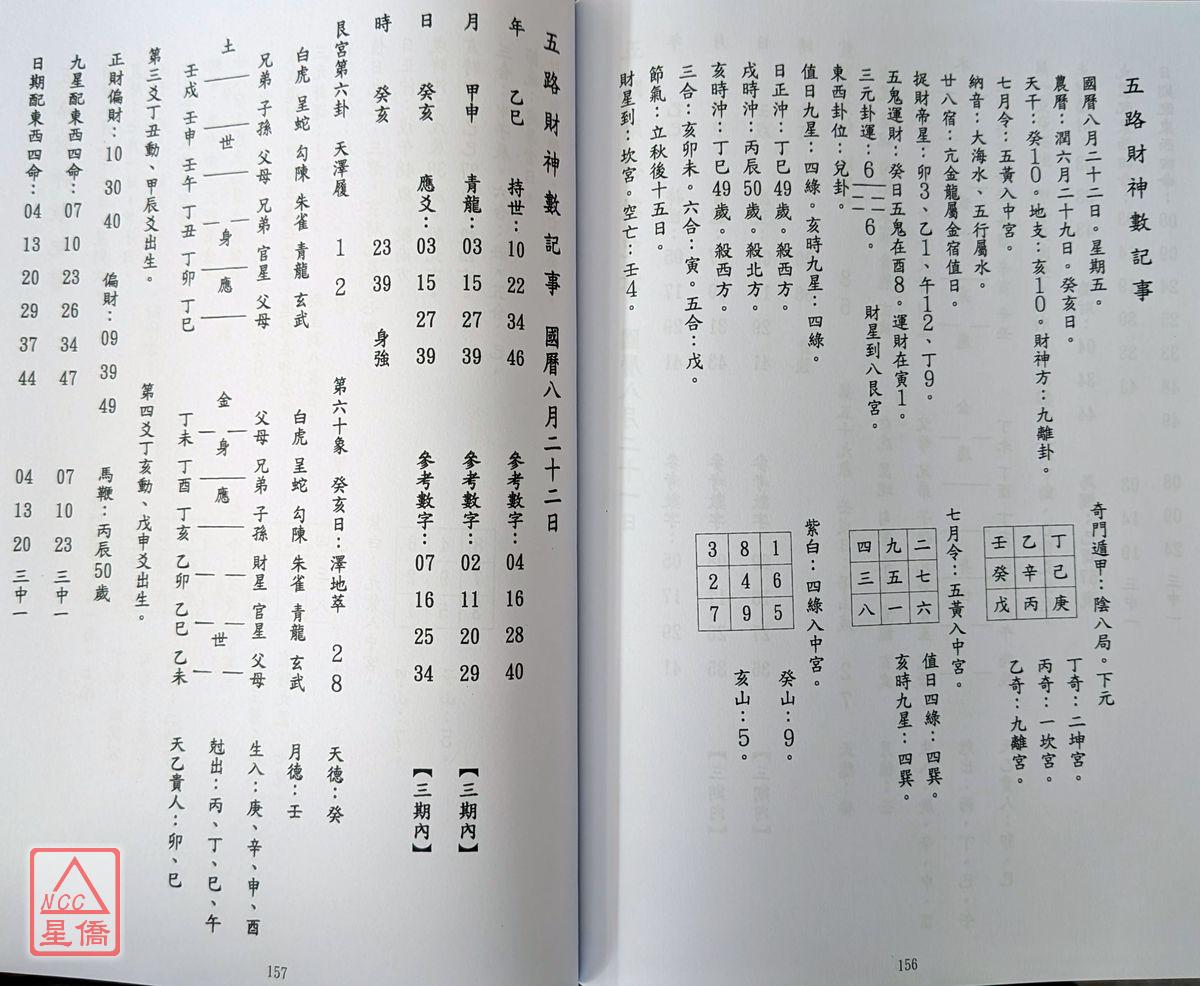 五路財神數記事
國曆八月二十二日。星期五。
農曆：潤六月二十九日。癸亥日。
天干：癸10。地支：亥10。財神方：九離卦。
七月令：五黃入中宮。
納音：大海水、五行屬水。
廿八宿：亢金龍屬金宿值日。
捉財帝星：卯3、乙1、午12、丁9。
五鬼運財：癸日五鬼在酉8。運財在寅1。
三元卦運：6 6。 財星到八艮宮。
東西卦位：兌卦。
值日九星：四綠。亥時九星：四綠。
日正沖：丁巳49歲。殺西方。
戌時沖：丙辰50歲。殺北方。
亥時沖：丁巳49歲。殺西方。
三合：亥卯未。六合：寅。五合：戊。
節氣：立秋後十五日。
財星到：坎宮。空亡：壬4。
奇門遁甲：陰八局。下元
丁 己 庚
乙 辛 丙
壬 癸 戊
丁奇：二坤宮。
丙奇：一坎宮。
乙奇：九離宮。
七月令：五黃入中宮。
二 七 六
九 五 一
四 三 八
值日四綠：四巽。
亥時九星：四巽。
紫白：四綠入中宮。
1 6 5
8 4 9
3 2 7
癸山：9。
亥山：5。
156
五路財神數記事 國曆八月二十二日
年 乙巳 持世：10 22 34 46 參考數字：04 16 28 40
月 甲申 青龍：03 15 27 39 參考數字：02 11 20 29 【三期內】
日 癸亥 應爻：03 15 27 39 參考數字：07 16 25 34 【三期內】
時 癸亥 23 39 身強
艮宮第六卦 天澤履 12 第六十象 癸亥日：澤地萃 28 天德：癸
白虎 呈蛇 勾陳 朱雀 青龍 玄武 白虎 呈蛇 勾陳 朱雀 青龍 玄武 月德：壬
兄弟 子孫 父母 兄弟 官星 父母 父母 兄弟 子孫 財星 官星 父母 生入：庚、辛、申、酉
土 世 身 應 金 身 應 世
壬戌 壬申 壬午 丁丑 丁卯 丁巳 丁未 丁酉 丁亥 乙卯 乙巳 乙未 尅出：丙、丁、巳、午
第三爻丁丑動、甲辰爻出生。 第四爻丁亥動、戊申爻出生。 天乙貴人：卯、巳
正財偏財：10 30 40 偏財：09 39 49 馬鞭：丙辰50歲
九星配東西四命：07 10 23 26 34 47 07 10 23 三中一
日期配東西四命：04 13 20 29 37 44 04 13 20 三中一
157
NCC
星僑